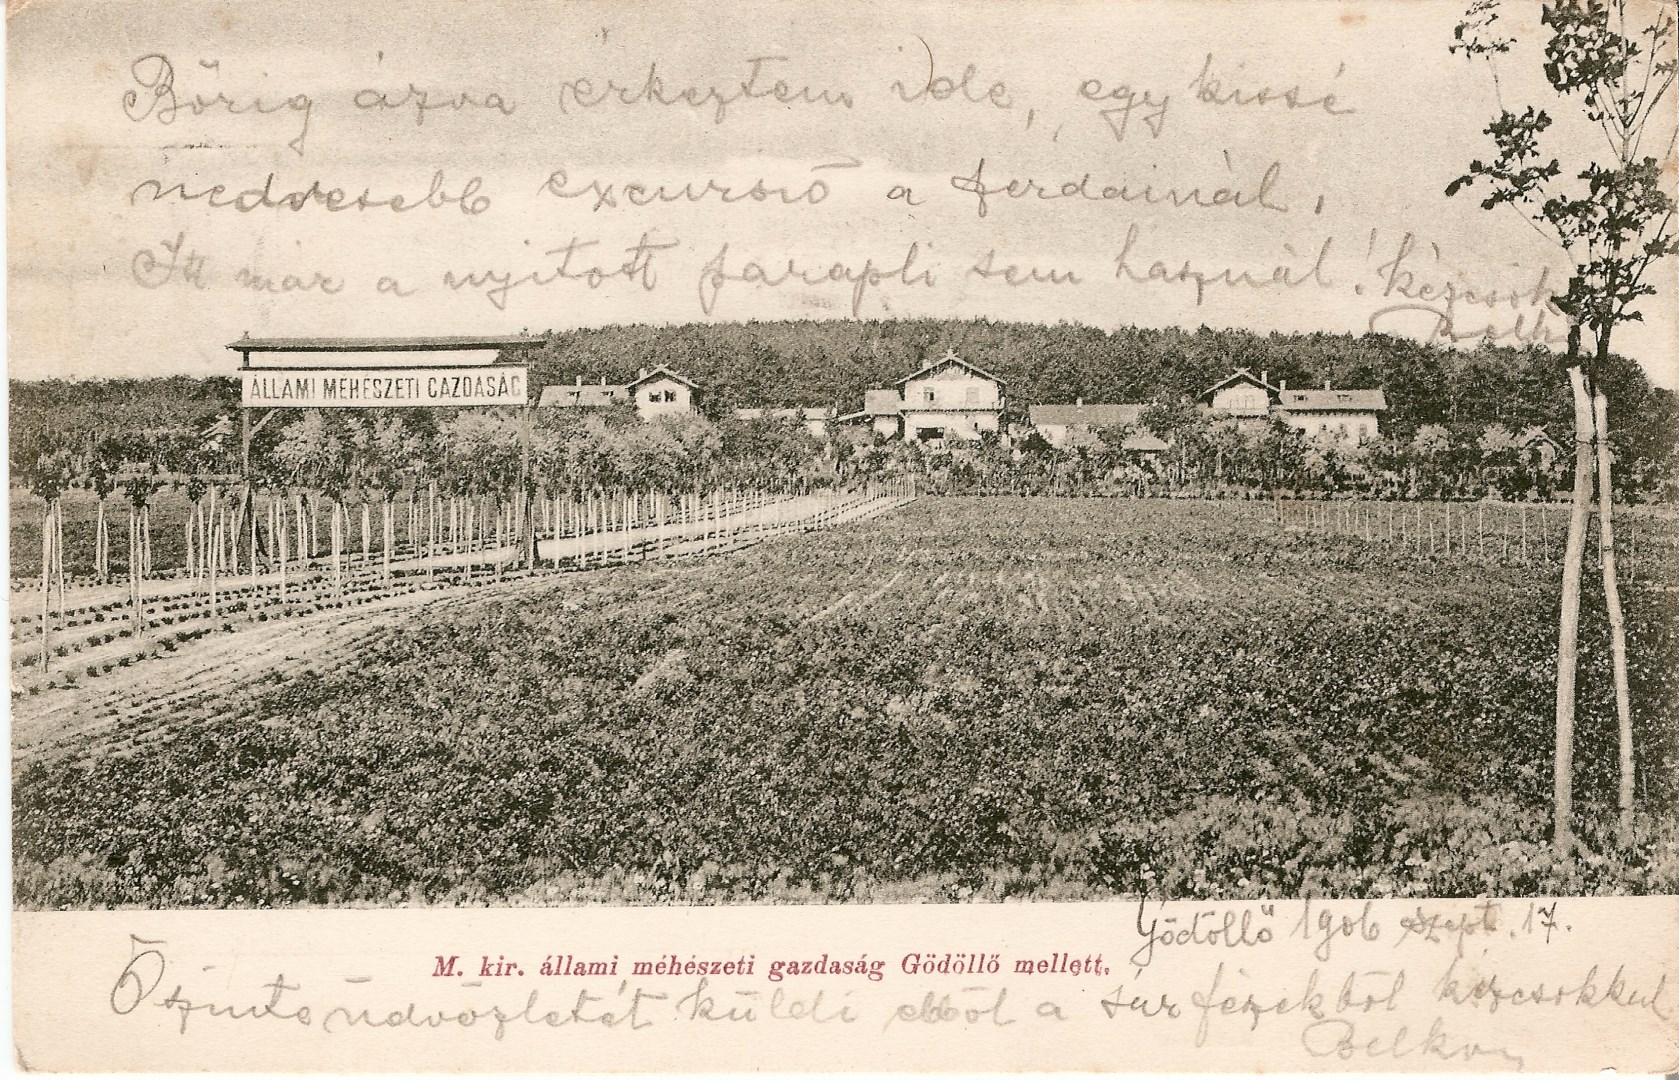 Bőrig ázva érkeztem ide, egy kissé
nedvesebb excursió a ferdainál,
Itt már a nyitott parapli sem használ! kézcsók
ÁLLAMI MÉHÉSZETI GAZDASÁG
Gödöllő 1906 szept. 17.
M. kir. állami méhészeti gazdaság Gödöllő mellett.
Őszinte üdvözletét küldi ebből a sár fészekből kézcsókkal